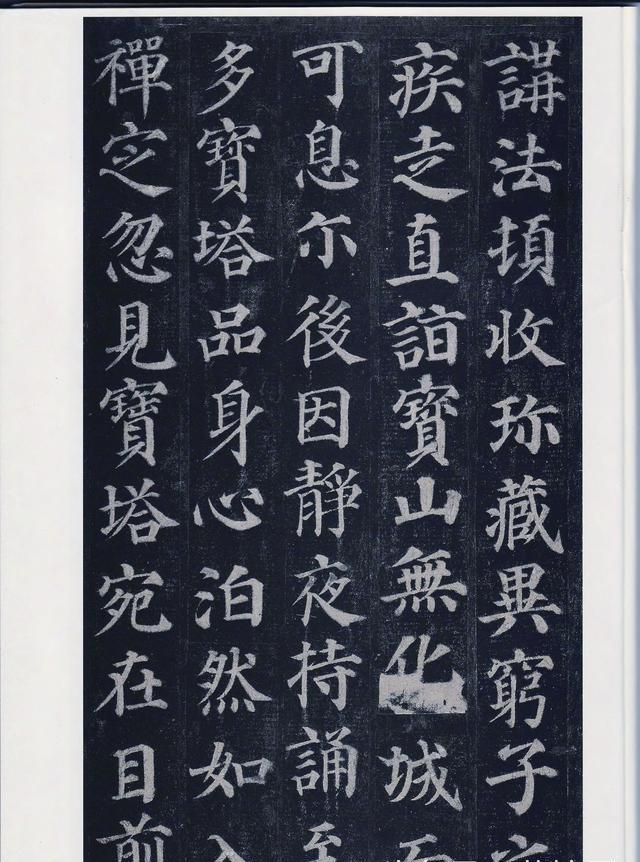 講法頓收珎藏異窮子
疾走直詣寶山無化城而
可息尒後因靜夜持誦至
多寶塔品身心泊然如入
禪定忽見寶塔宛在目前